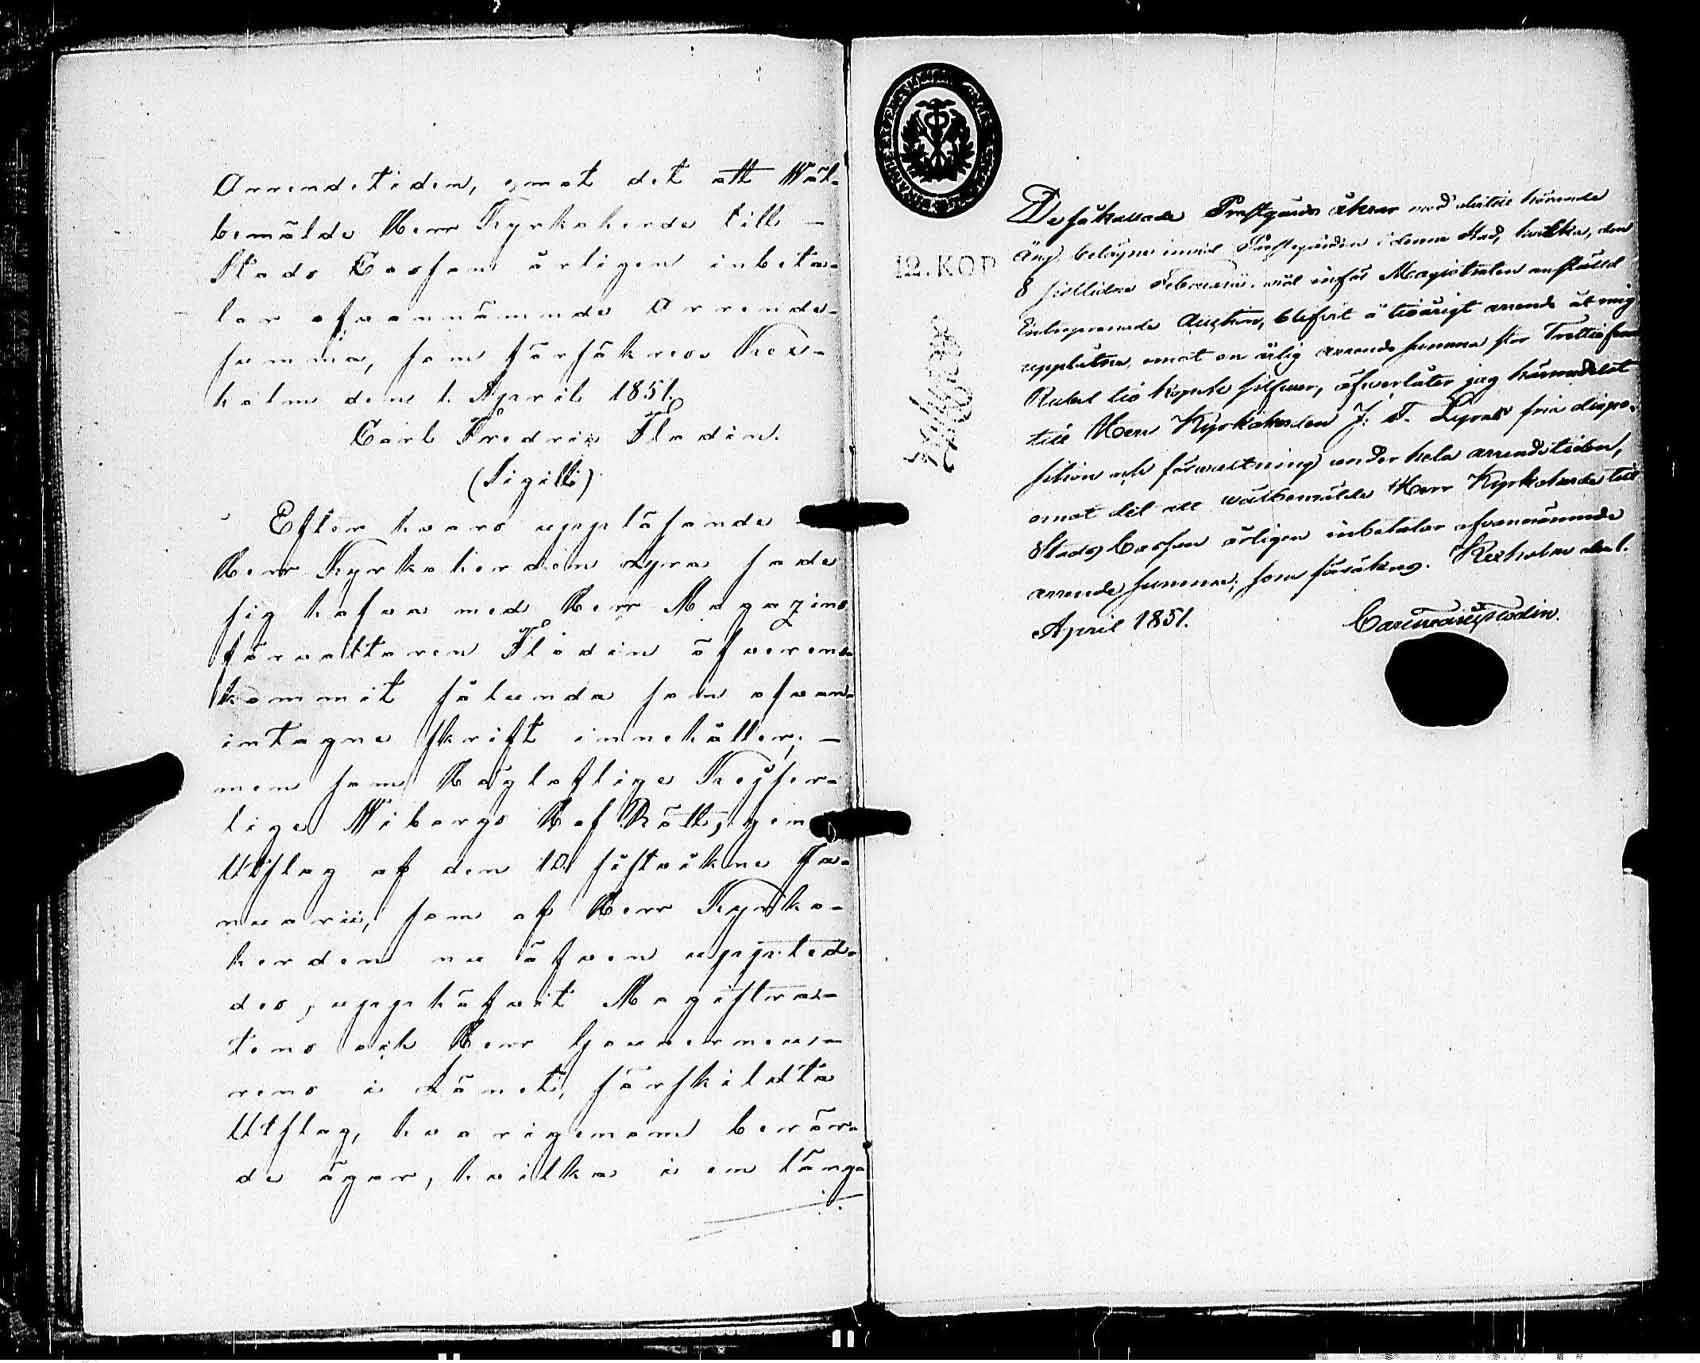 Arrendetiden, emot det att Wäl-
bemälde Herr Kyrkoherde till
Stads Cassan årligen inbeta-
lar ofvannämnde Arrende-
summa, som försäkras Kex-
holm den 1. April 1851.
Carl Fredric Flodin.
(Sigill)
Efter hvars uppläsande
Herr Kyrkoherden Lyra sade
sig hafva med Herr Magazins
förvaltaren Flodin öfverens-
kommit sålunda som ofvan-
intagne skrift innehåller;
men som Högloflige Kejser-
lige Wiborgs Hof Rätt, genom
Utslag af den 10 sistvikne Ja-
nuarii, som af Herr Kyrko-
herden nu äfven uppted-
des, upphäfvit Magistra-
tens och Herr Gouverneu-
rens i Länet, särskildta
Utslag, hvarigenom berör-
de ägor, hvilka i en läng-
De såkallade Prestgårds åkrar med dertill hörande
äng, belägne invid Prestgården i denna Stad, hvilka, den
8 sistlidne Februarii vid inför Magistraten anställd
Entreprenade Auction, blifvit å tioårigt arrende åt mig
upplåtne, emot en årlig arrende summa stor Trettio fem
Rubel tio kopek silfver, öfverlåter jag härmedelst
till Herr Kyrkoherden J. F. Lyra fria dispo-
sition och förvaltning under hela arrendetiden,
emot det att välbemälde Herr Kyrkoherde till
Stads Cassan årligen inbetalar ofvannämnde
arrende summa; som försäkras. Kexholm den 1.
April 1851.
Carl Fredric Flodin.
12. KOP